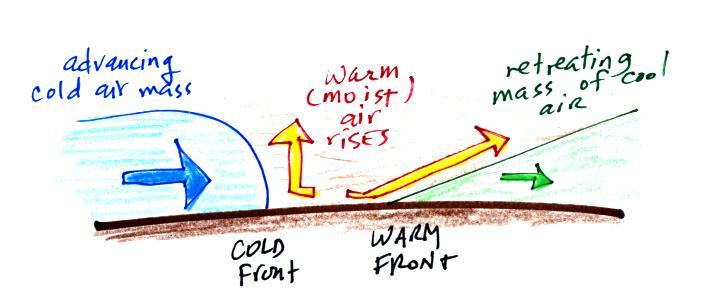 advancing
cold air mass
warm
(moist)
air
rises
retreating
mass of cool
air
COLD
Front
WARM
FRONT